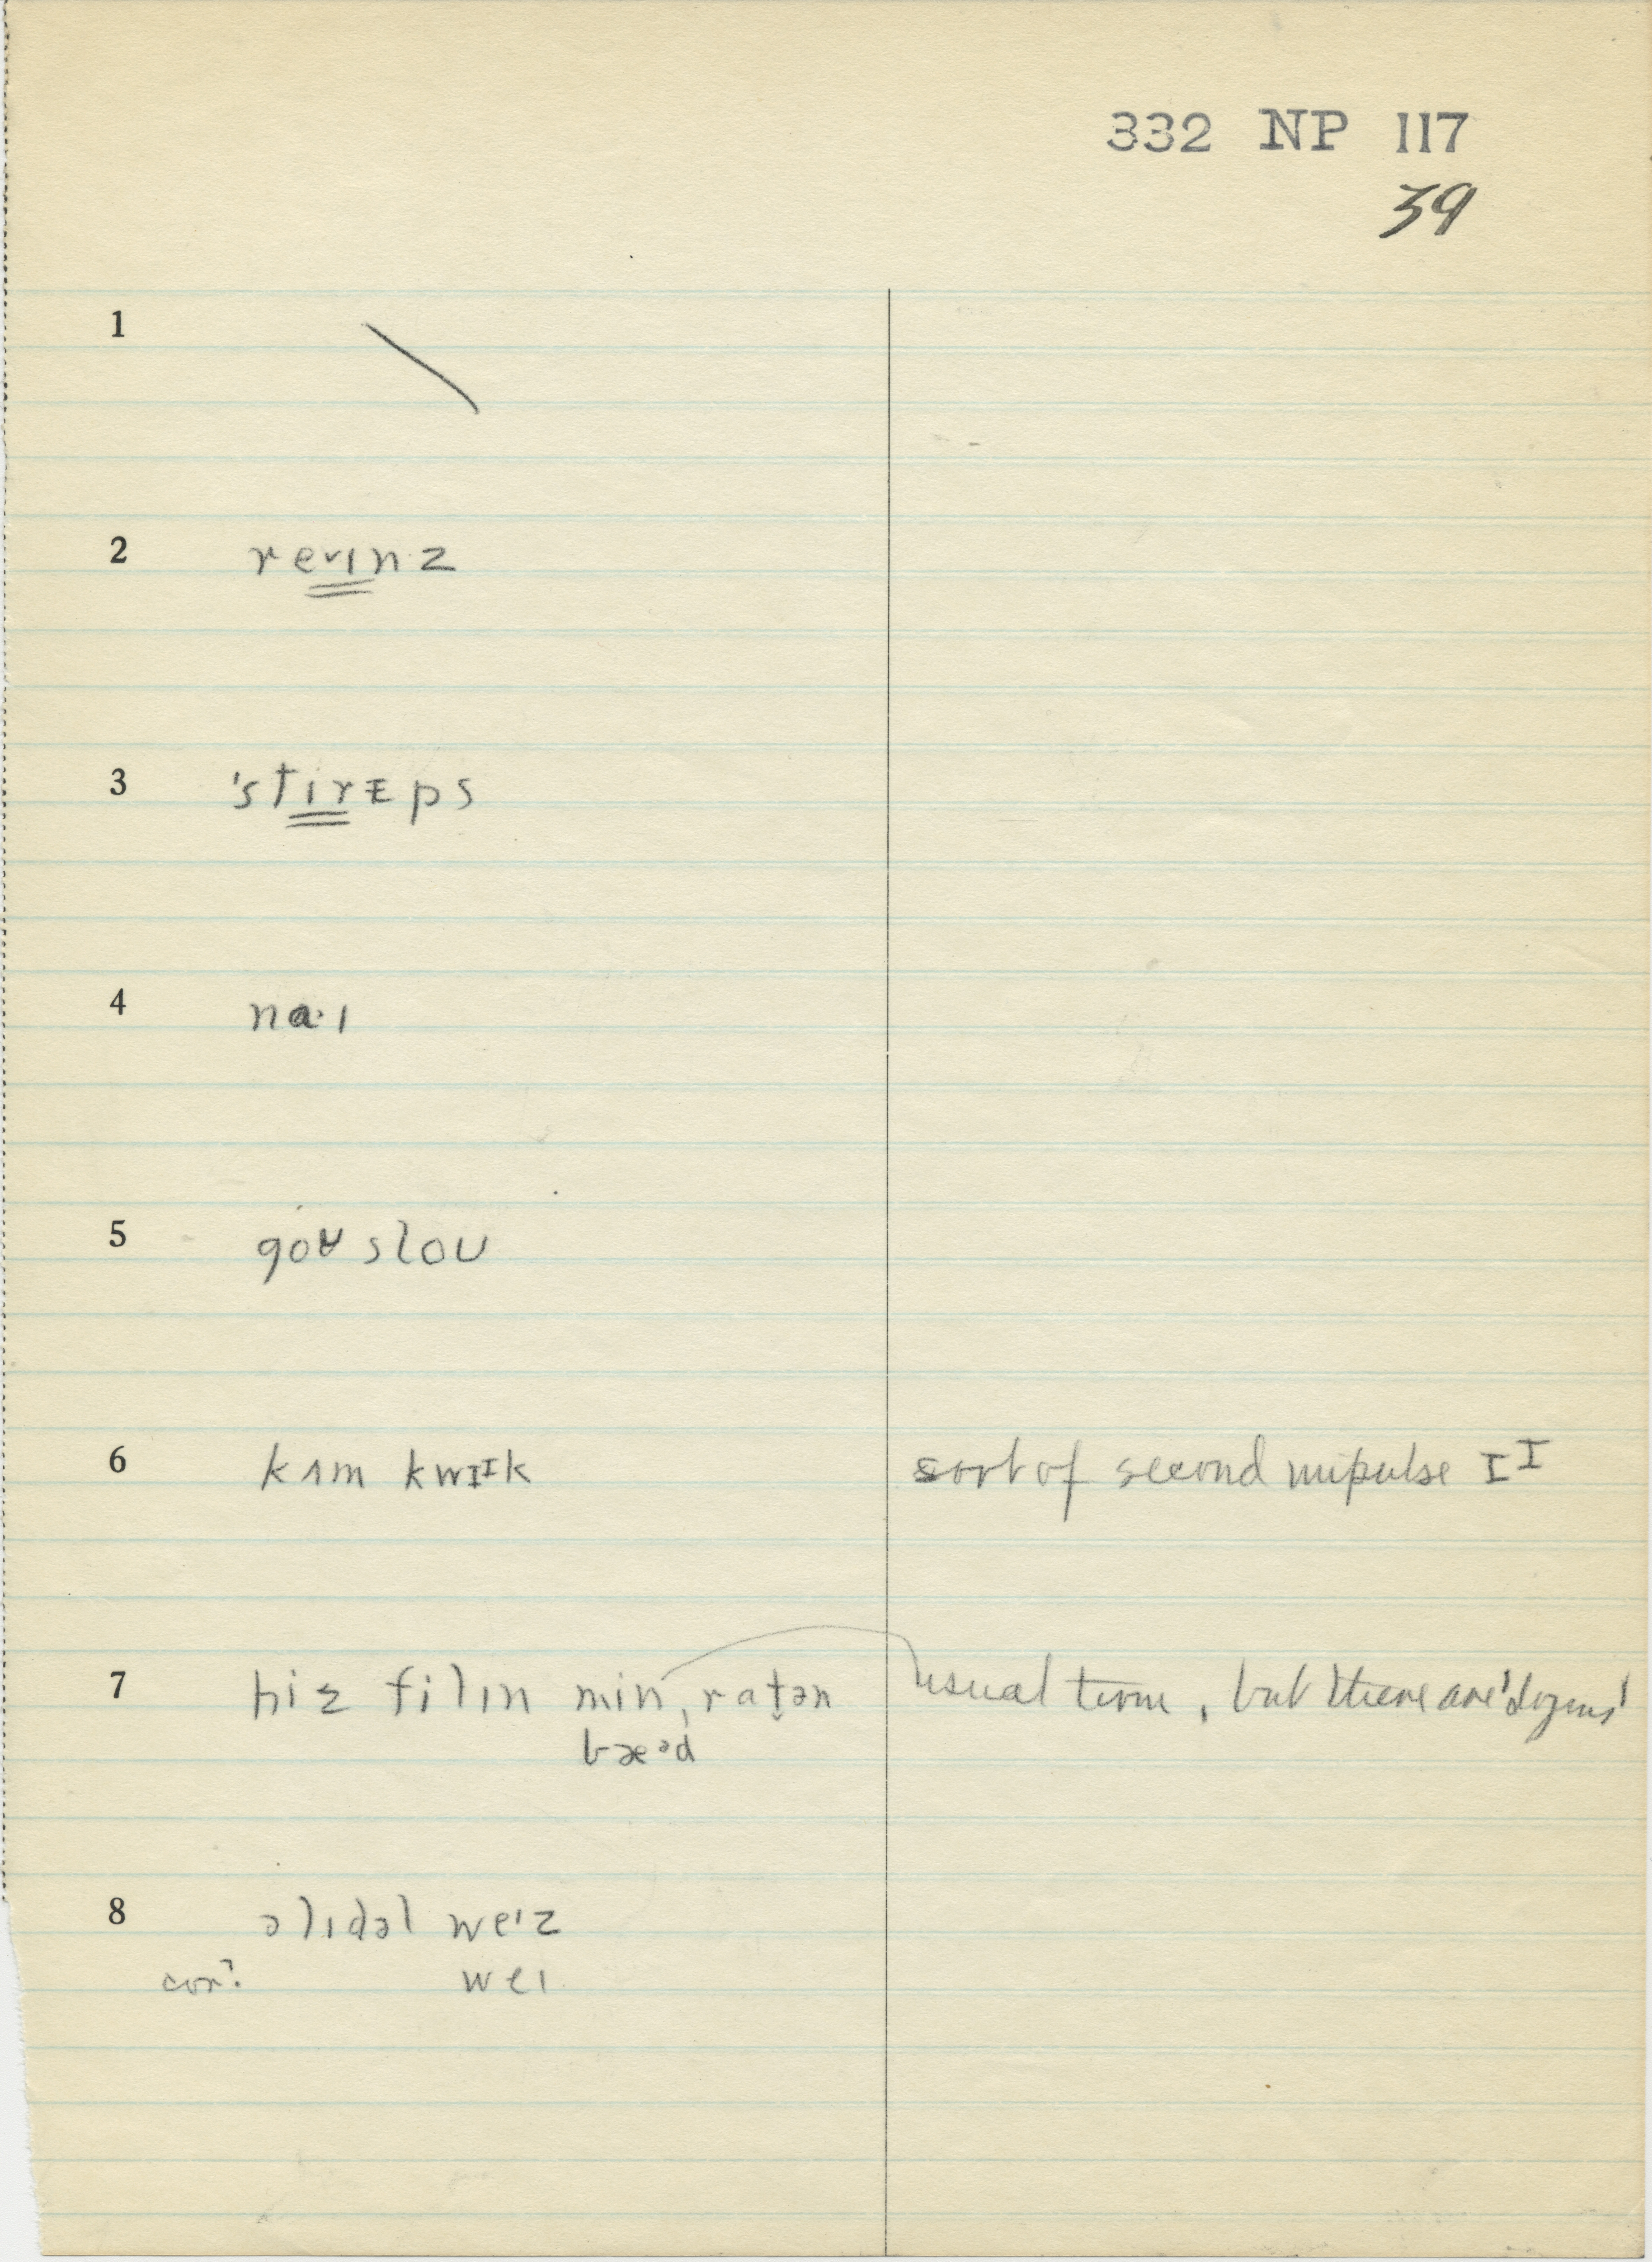 332 NP 117
39
1
2 revɪnz
3 'stirɪps
4 na·ɪ
5 goʊ sloʊ
6 kʌm kwɪᴵk sort of second impulse ɪᴵ
7 hiz filɪn min, rat̬ən usual term, but there are 'dozens'
bæᵊd
8 əlɪdəl weɪz
cor? weɪ